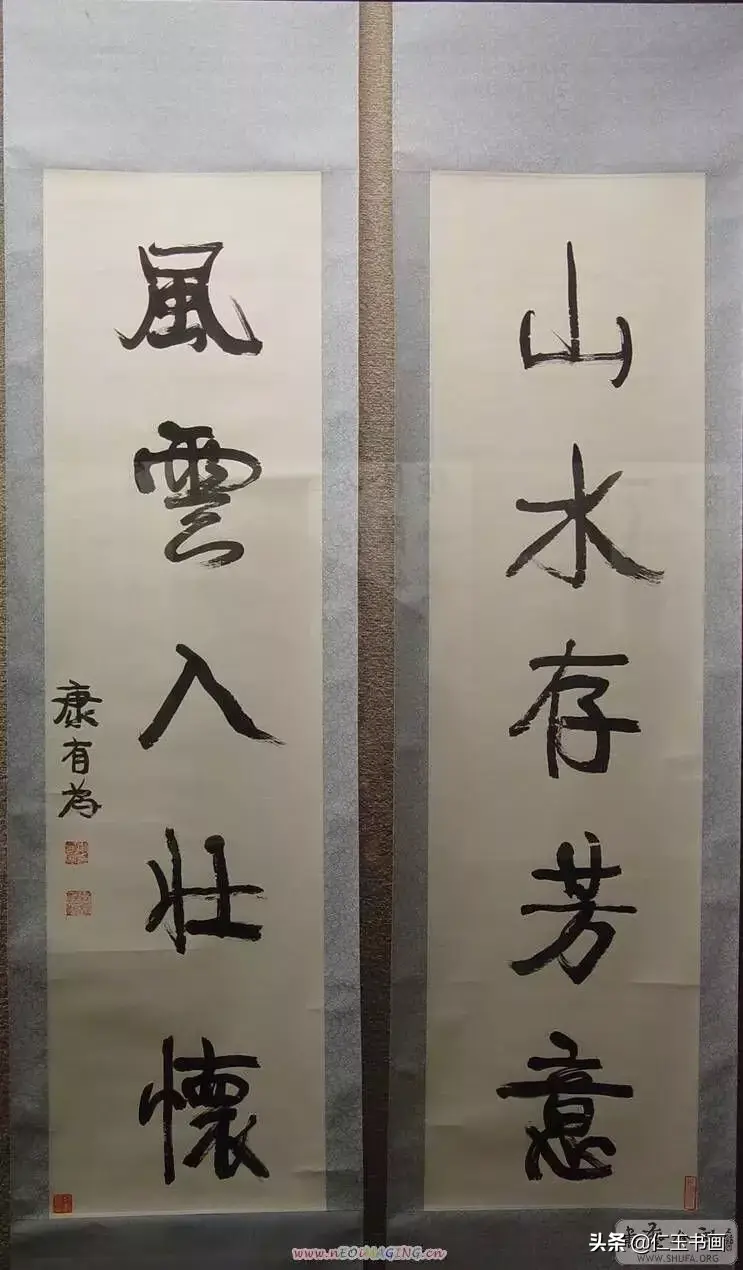 山水存芳意
風雲入壯懷
康有為
www.nEOiMAGiNG.cn
头条 @仁玉书画
WWW.SHUFA.ORG